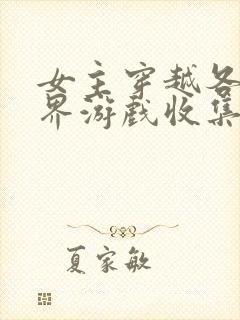 女主穿越各
界游戏收集
夏家敏